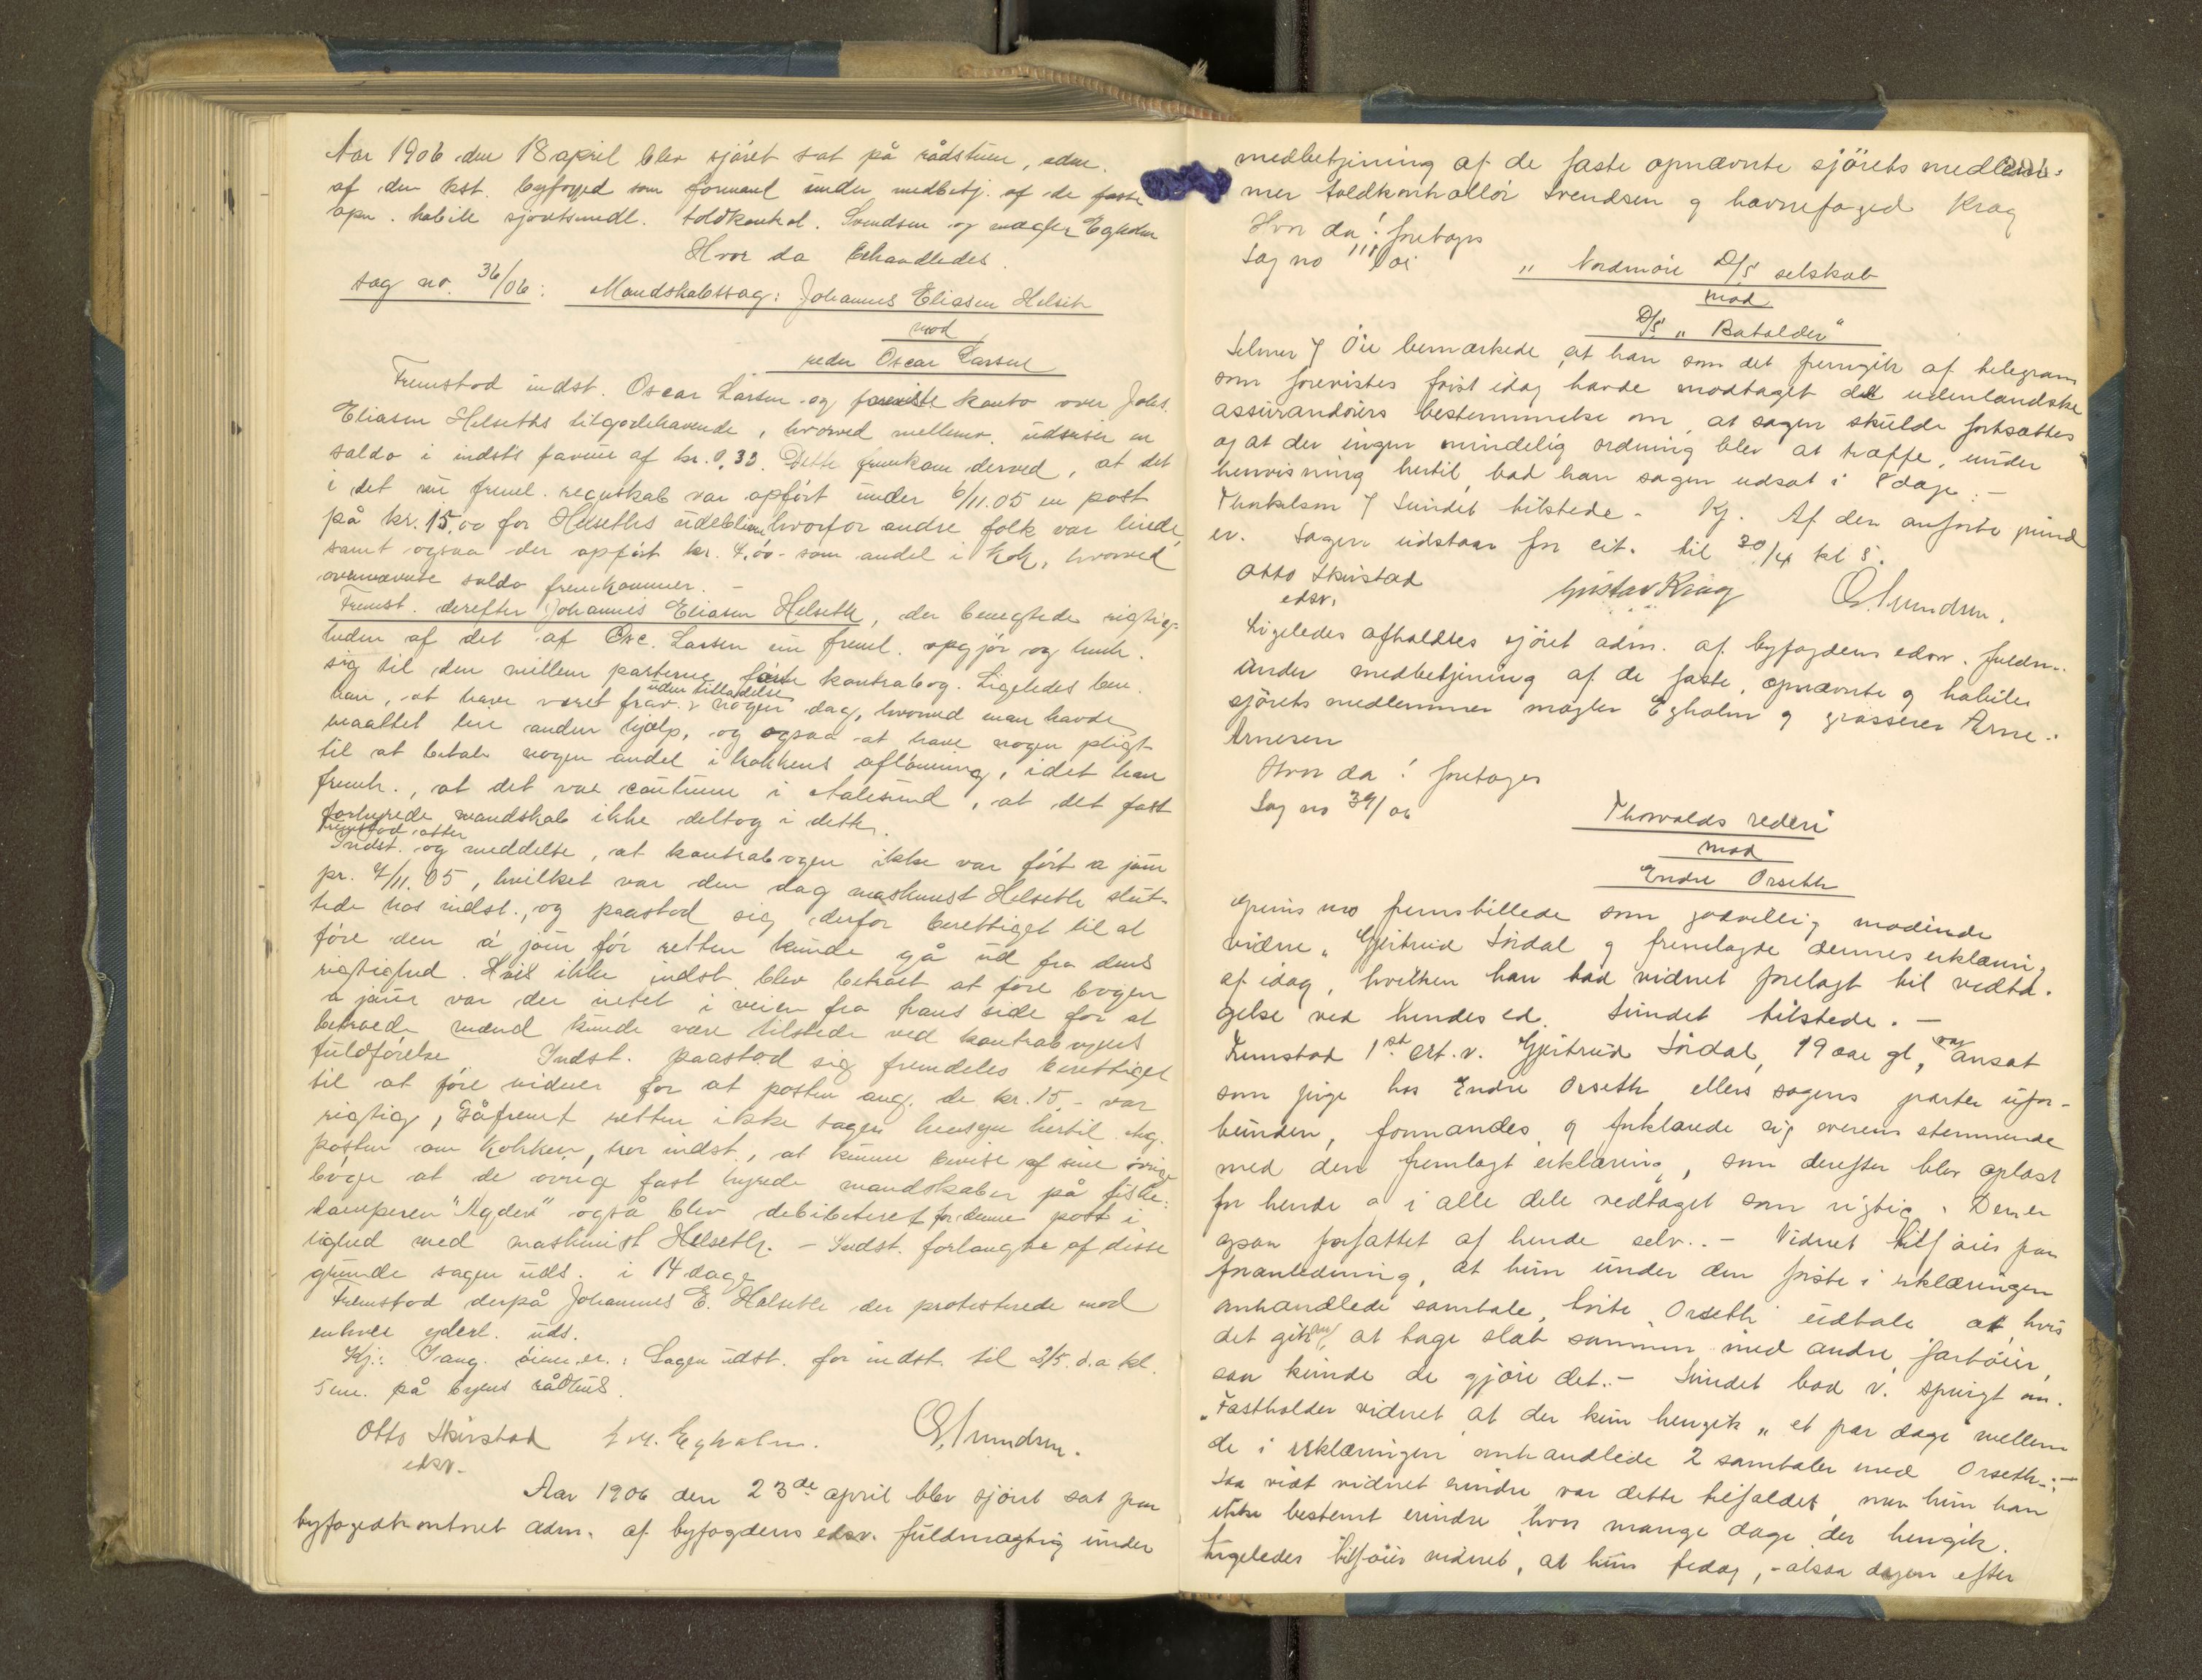 Aar 1906 den 18 april blev sjöret sat på rådstuen, adm.
af den kst. byfoged som formand under medbetj. af de faste
opn. habile sjöretsmedl. toldkontrol. Svendsen og mægler Egholm
Hvor da behandledes.
sag no. 36/06: Mandskabssag: Johannes Eliasen Helseth
mod
reder Oscar Larsen
Fremstod indst. Oscar Larsen og foreviste konto over Johs.
Eliasen Helseths tilgodehavende, hvorved mellemv. udviser en
saldo i indsts favör af kr. 0,33. Dette fremkom derved, at det
i det nu freml. regnskab var opfört under 6/11.05 en post
på kr. 15,00 for Helseths udebliven hvorfor andre folk var leiede,
samt ogsaa der opfört kr. 4,00 - som andel i kok, hvorved
ovennævnte saldo fremkommer. -
Fremst. derefter Johannes Eliasen Helseth, der benegtede rigtig-
heden af det af Osc. Larsen nu freml. opgjör og henh.
sig til den mellem parterne förte kontrabog. Ligeledes ben.
han, at have været frav. uden tilladelse nogen dag, hvorved man havde
maattet leie anden hjælp, og ogsaa at have nogen pligt
til at betale nogen andel i kokkens aflönning, idet han
fremh., at det var coutume i Aalesund, at det fast
forhyrede mandskab ikke deltog i dette.
Fremstod atter
Indst. og meddelte, at kontrabogen ikke var fört a jour
pr. 7/11.05, hvilket var den dag maskinist Helseth slut-
tede hos indst., og paastod sig derfor berettiget til at
före den á jour för retten kunde gå ud fra dens
rigtighed. Hvis ikke indst. blev betroet at före bogen
a jour var der intet i veien fra hans side for at
betroede mænd kunde være tilstede ved kontrabogens
fuldförelse Indst. paastod sig fremdeles berettiget
til at före vidner for at posten ang. de kr. 15,- var
rigtig, såfremt retten ikke tager hensyn hertil. Ang.
posten om kokken, tror indst., at kunne bevise af sine övrige
böge at de övrige fast hyrede mandskaber på fiske-
damperen "Agder" også blev debiteret for denne post i
lighed med maskinist Helseth. - Indst. forlangte af disse
grunde sagen uds. i 14 dage
Fremstod derpå Johannes E. Helseth der protesterede mod
enhver yderl. uds.
Kj.: I ang. öiem. er.: Sagen udst. for indst. til 2/5 d.a kl.
5 em. på byens rådhus.
Otto Skirstad L M. Egholm. E. Svendsen.
edsv.
Aar 1906 den 23de april blev sjöret sat paa
byfogedkontoret adm. af byfogdens edsv. fuldmægtig under
medbetjening af de faste opnævnte sjörets medlem-
mer toldkontrollör Svendsen og havnefoged Krag
Hvor da! foretoges
Sag no
" Nordmöre D/S selskab
mod
D/S "Batalder"
Selmer f Öie bemærkede, at han som det fremgik af telegram
som forevistes först idag havde modtaget det udenlandske
assurandörers bestemmelse om, at sagen skulde fortsættes
og at der ingen mindelig ordning blev at træffe, under
henvisning hertil, bad han sagen udsat i 8 dage. -
Thorkilsen f Sundet tilstede - Kj. Af den anförte grund
er. Sagen udstaar for cit. til 30/4 kl 5.
Otto Skirstad Gustav Krag E. Svendsen.
edsv.
Ligeledes afholdtes sjöret adm. af byfogdens edsv. fuldm.
under medbetjening af de faste, opnævnte og habile
sjörets medlemmer mægler Egholm og grosserer Arne
Arnesen
Hvor da! foretoges
Sag no 39/06
Thorvalds rederi
mod
Endre Orseth
fremstillede som godvillig mödende
vidne, Gjertrud Sördal og fremlagde dennes erklæring
af idag, hvilken han bad vidnet forelagt til vedta-
gelse ved hendes ed. Sundet tilstede. -
Fremstod 1ste crt. v. Gjertrud Sördal, 19 aar gl, var ansat
som pige hos Endre Orseth, ellers sagens parter ufor-
bunden, formandes og forklarede sig overens stemmende
med den fremlagt erklæring, som derefter blev oplæst
for hende og i alle dele vedtaget som rigtig. Den er
ogsaa forfattet af hende selv. - Vidnet tilföier paa
foranledning, at hun under den förste i erklæringen
omhandlede samtale, hörte Orseth udtale at, hvis
det gik an, at tage slæb sammen med andre fartöier,
saa kunde de gjöre det. - Sundet bad v. spurgt om.
"Fastholder vidnet at der kun hengik "et par dage" mellem
de i erklæringen omhandlede 2 samtaler med Orseth. -
Saa vidt vidnet erindre var dette tilfældet, men hun kan
ikke bestemt erindre hvor mange dage der hengik.
Ligeledes tilföier vidnet, at hun fredag, - altsaa dagen efter